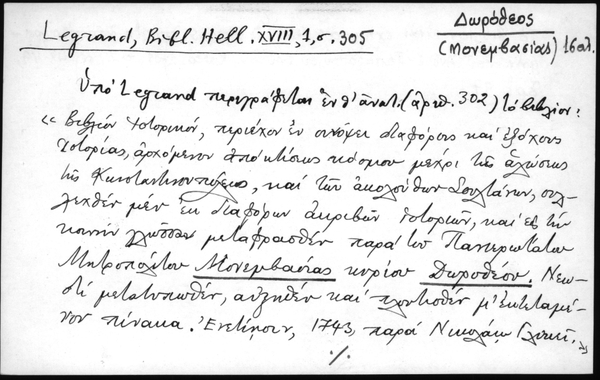 Legrand, Bibl. Hell. XVIII, 1, σ. 305
Δωρόθεος
(Μονεμβασίας) 16 αἰ.
Ὑπό Legrand περιγράφεται ἐν θ' ἀνατ. (ἀριθ. 302) τό βιβλίον:
« Βιβλίον ἱστορικόν, περιέχον ἐν συνόψει διαφόρους καί ἐξόχους
ἱστορίας, ἀρχόμενον ἀπό κτίσεως κόσμου μέχρι τῆς ἁλώσεως
τῆς Κωνσταντινουπόλεως, καί τῶν ἀκολούθων Σουλτάνων, συλ-
λεχθέν μέν ἐκ διαφόρων ἀκριβῶν ἱστοριῶν, καί εἰς τήν
κοινήν γλῶσσαν μεταφρασθέν παρά τοῦ Πανιερωτάτου
Μητροπολίτου Μονεμβασίας κυρίου Δωροθέου. Νεω-
στί μετατυπωθέν, αὐξηθέν καί πλουτισθέν μ' ἐκτεταμέ-
νον πίνακα. Ἐνετίησιν, 1743, παρά Νικολάῳ Γλυκεῖ. »
·/.